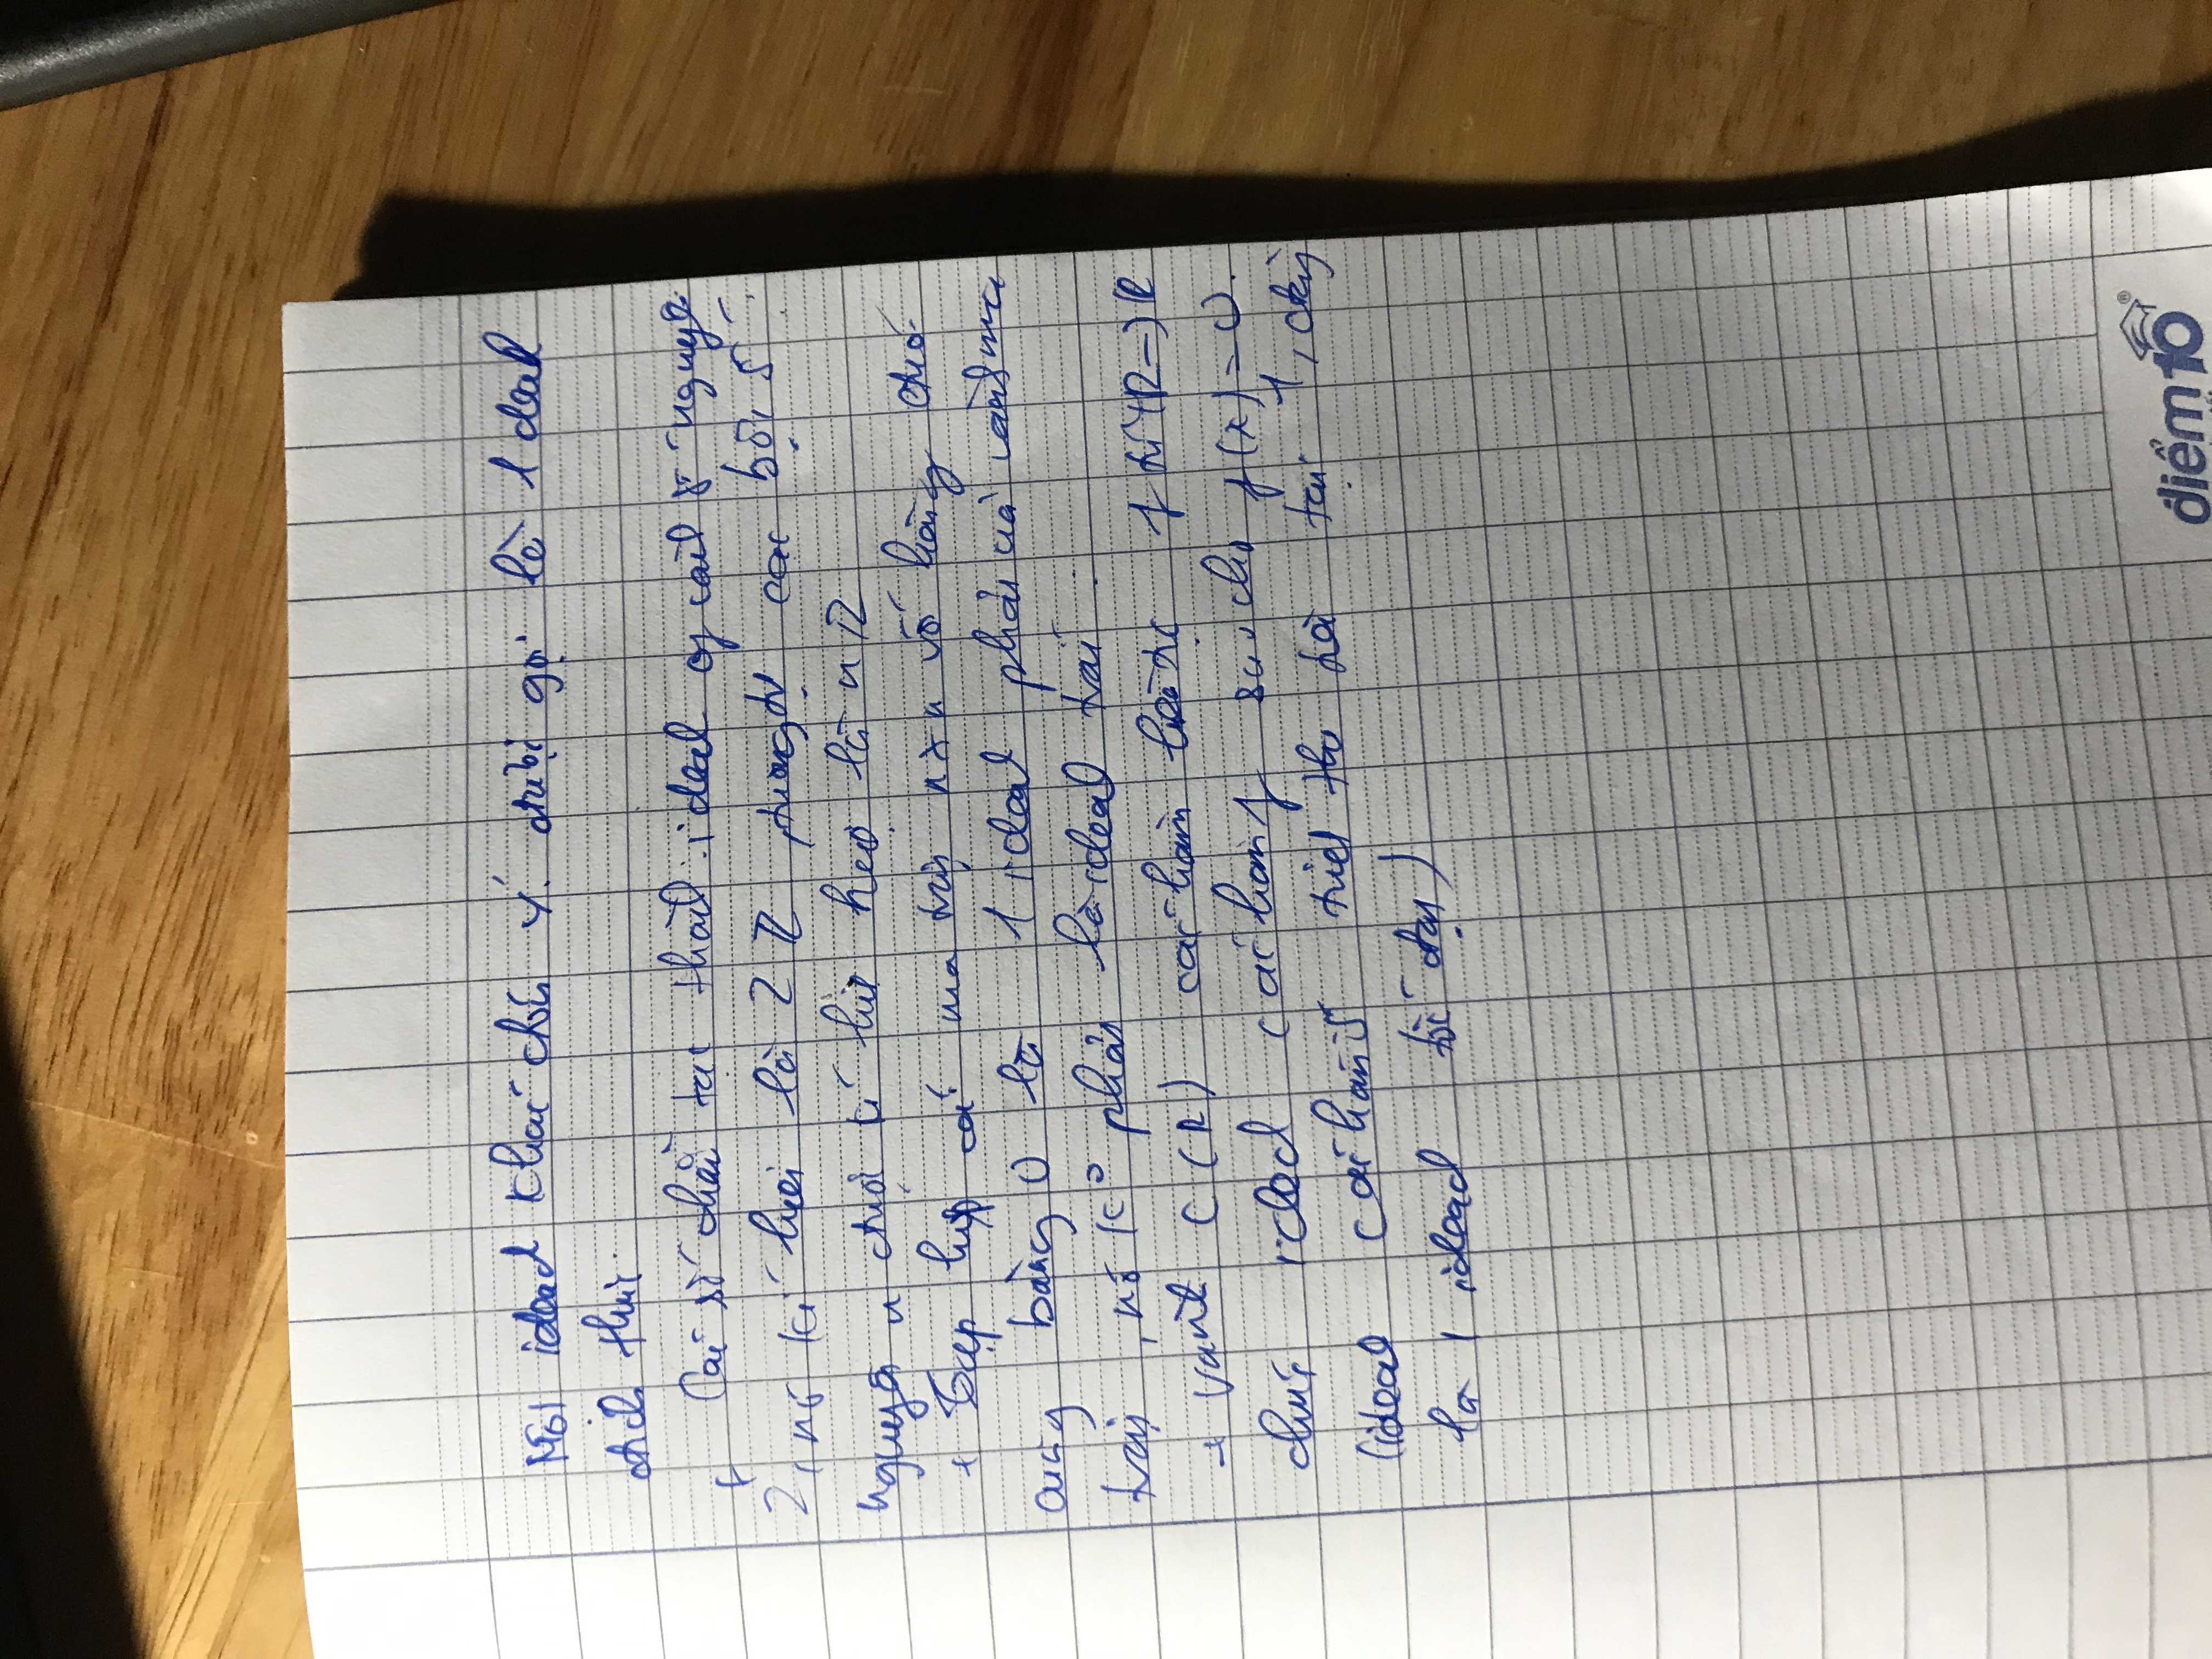 Một idead khác chính ý được gọi là 1 deal
đích thực.
+ Các số chẵn tạo thành ideal of vành số nguyên
Z, nó kí hiệu là 2Z, tương tự các bội số
nguyên n được kí hiệu là nZ
+ Tập hợp các ma trận n x n với hàng
cùng bằng 0 là 1 ideal phải của vành ma
trận, nó k° phải là ideal trái.
+ Vành C(R) các hàm liên tục f từ R -> R
chứa idead các hàm f sao cho f(x) = 0.
(ideal các hàm số triệt tại 1, đây
là 1 idead tối đại)
điểm10